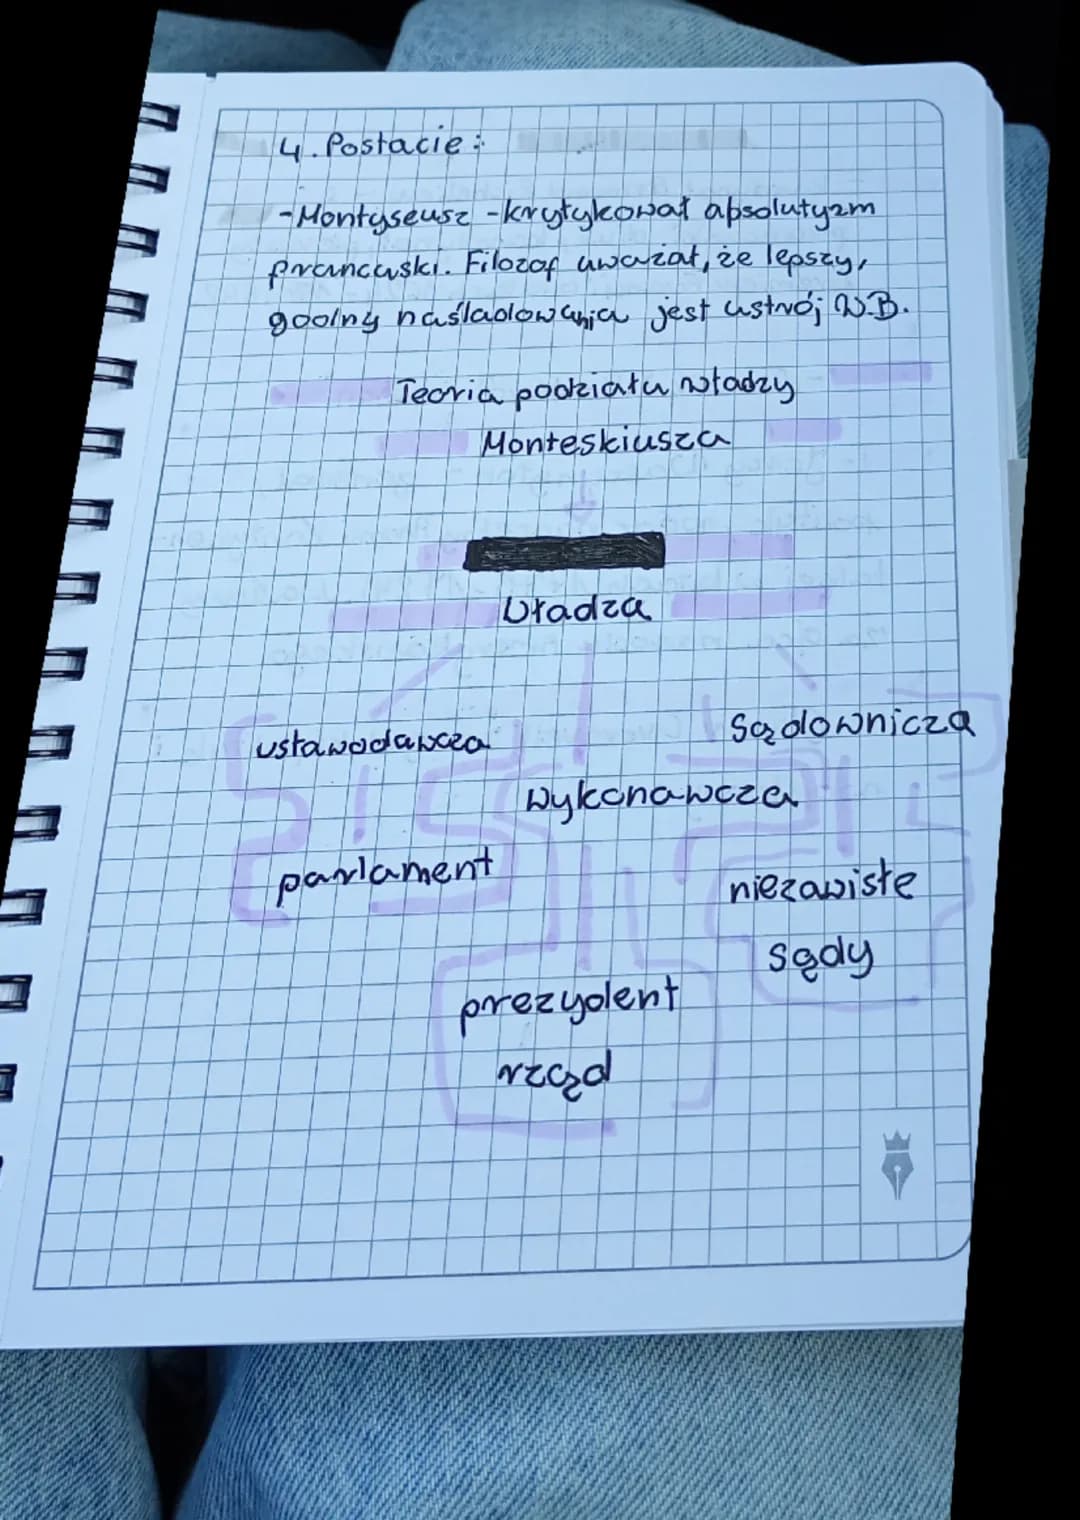 4. Postacie:
-Montyseusz -krytykował absolutyzm
francuski. Filozof uważał, że lepszy,
godny naśladowania jest ustrój W.B.
Teoria podziału władzy
Monteskiusza
Władza
ustawodawcza
Sądownicza
wykonawcza
parlament
niezawisłe
sądy
prezydent
rząd